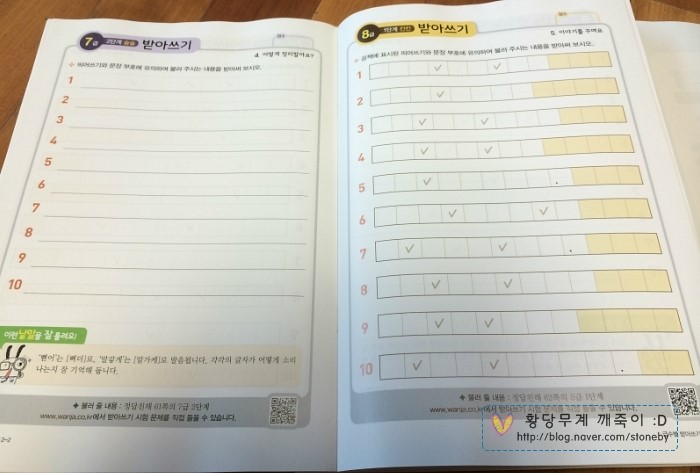 7급 2단계 받아쓰기
4. 어떻게 정리할까요?
띄어쓰기와 문장 부호에 유의하며 불러 주시는 내용을 받아써 보시오.
1
2
3
4
5
6
7
8
9
10
이런 낱말을 잘 틀려요!
'뻗어'는 [뻐더]로, '말갛게'는 [말가케]로 발음됩니다. 각각의 글자가 어떻게 소리
나는지 잘 기억해 둡니다.
불러 줄 내용 : 정답친해 61쪽의 7급 2단계
www.wanja.co.kr에서 받아쓰기 시험 문제를 직접 들을 수 있습니다.
2-2
8급 1단계 받아쓰기
5. 이야기를 꾸며요
공책에 표시된 띄어쓰기와 문장 부호에 유의하며 불러 주시는 내용을 받아써 보시오.
1
2
3
4
5
6
7
8
9
10
불러 줄 내용 : 정답친해 62쪽의 8급 1단계
www.wanja.co.kr에서 받아쓰기 시험 문제를 직접 들을 수 있습니다.
황당무계 깨죽이 :D
http://blog.naver.com/stoneby
받아쓰기